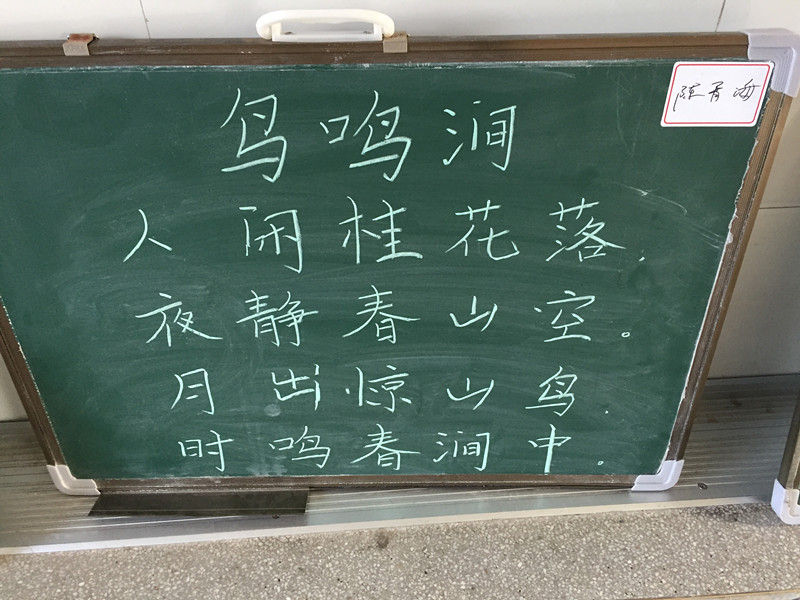 鸟鸣涧
人闲桂花落.
夜静春山空。
月出惊山鸟.
时鸣春涧中。
陈青海